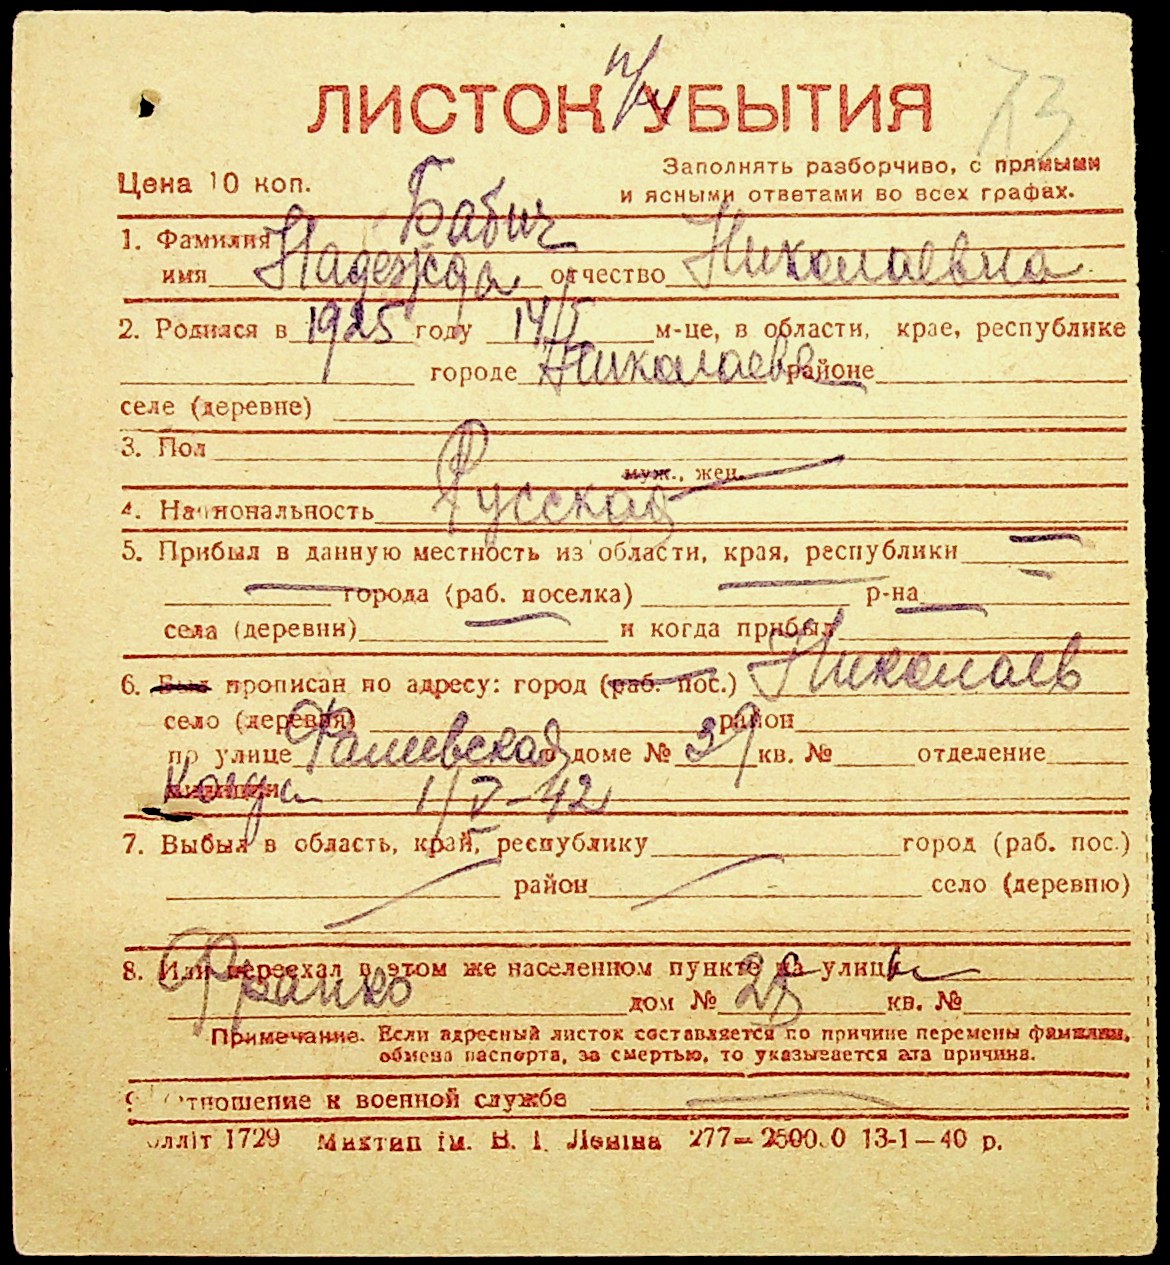 73
ЛИСТОК УБЫТИЯ
Цена 10 коп.
Заполнять разборчиво, с прямыми
и ясными ответами во всех графах.
1. Фамилия Бабич
имя Надежда отчество Николаевна
2. Родился в 1925 году 14/5 м-це, в области, крае, республике
городе Николаеве районе
селе (деревне)
3. Пол
муж., жен.
4. Национальность Русская
5. Прибыл в данную местность из области, края, республики
города (раб. поселка) р-на
села (деревни) и когда прибыл
6. Был прописан по адресу: город (раб. пос.) Николаев
село (деревня) район
по улице доме № 39 кв. № отделение
милиции Когда 1/V-42
7. Выбыл в область, край, республику город (раб. пос.)
район село (деревню)
8. Или переехал в этом же населенном пункте на улицу
Франко дом № 28 кв. №
Примечание. Если адресный листок составляется по причине перемены фамилии,
обмена паспорта, за смертью, то указывается эта причина.
9. Отношение к военной службе
олліт 1729 Миктип ім. В. І. Леніна 277—2500.0 13-1—40 р.